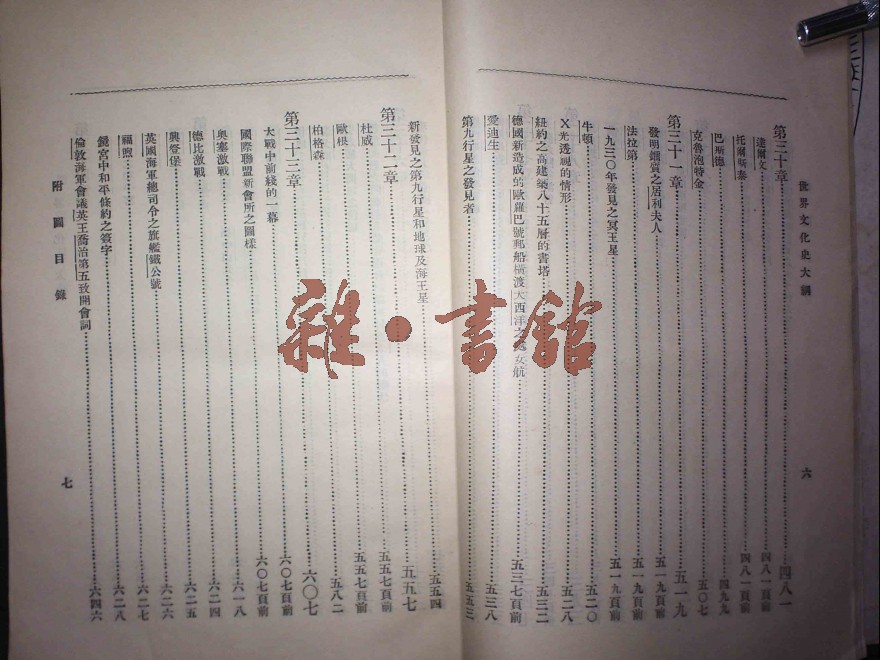 世界文化史大綱
六
第三十章……四八一
達爾文……四八一頁前
托爾斯泰……四八一頁前
巴斯德……四九九
克魯泡特金……五〇七
第三十一章……五一九
發明鐳質之居利夫人……五一九頁前
法拉第……五一九頁前
一九三〇年發見之冥王星……五一九頁前
牛頓……五二〇
X光透視的情形……五二八
紐約之高建築八十五層的書塔……五三二
德國新造成的歐羅巴號郵船橫渡大西洋之 女航……五三七頁前
愛迪生……五三八
第九行星之發見者……五五三
新發見之第九行星和地球及海王星……五五四
第三十二章……五五七
杜威……五五七頁前
歐根……五五七頁前
柏格森……五八二
第三十三章……六〇七
大戰中前綫的一幕……六〇七頁前
國際聯盟新會所之圖樣……六〇七頁前
奧塞激戰……六一八
德比激戰……六二四
興登堡……六二五
英國海軍總司令之旗艦鐵公號……六二六
福煦……六二七
鏡宮中和平條約之簽字……六二八
倫敦海軍會議英王喬治第五致開會詞……六四六
附圖目錄
七
雜·書館